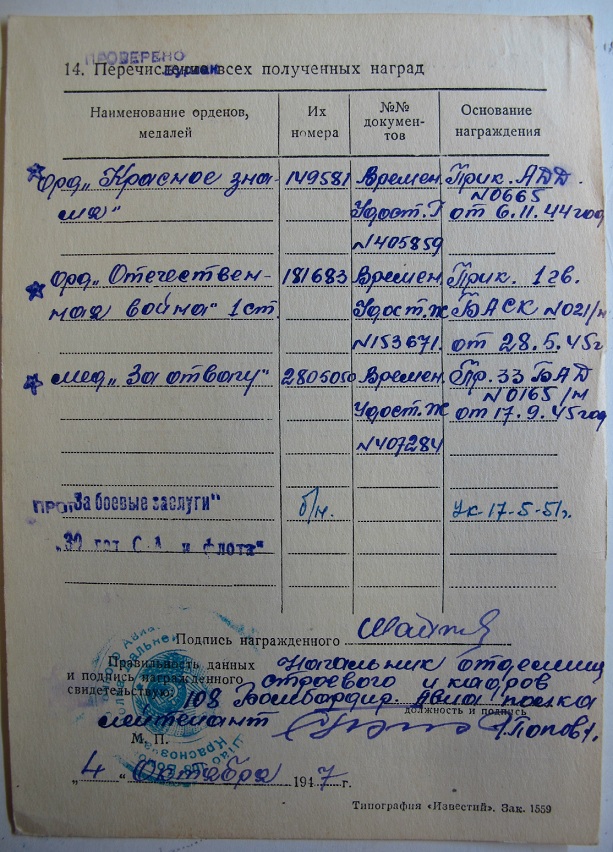 ПРОВЕРЕНО
14. Перечисление всех полученных наград
Наименование орденов, медалей
Их номера
№№ докумен- тов
Основание награждения
Орд. „Красное зна- 149581 Времен. Прик. АДД.
№0665
мя" Удост. Г от 6.11.44 год
№405859
Орд „Отечествен- 181683 Времен. Прик. 1 гв.
ная война" 1 ст. Удост. Ж БАСК №021/н
№153671. от 28.5.45г
мед „За отвагу" 2805050 Времен. Пр. 33 БАД
№0165/н
Удост. Ж от 17.9.45 год
№407284
„За боевые заслуги" б/н. Ук 17-5-51г.
„30 лет С.А. и флота"
Подпись награжденного
Правильность данных Начальник отделения
и подпись награжденного строевого и кадров
свидетельствую: 108 Бомбардир. Авиа полка
должность и подпись
лейтенант /Попов/.
М. П.
„4" Октября 1947 г.
Типография «Известий». Зак. 1559